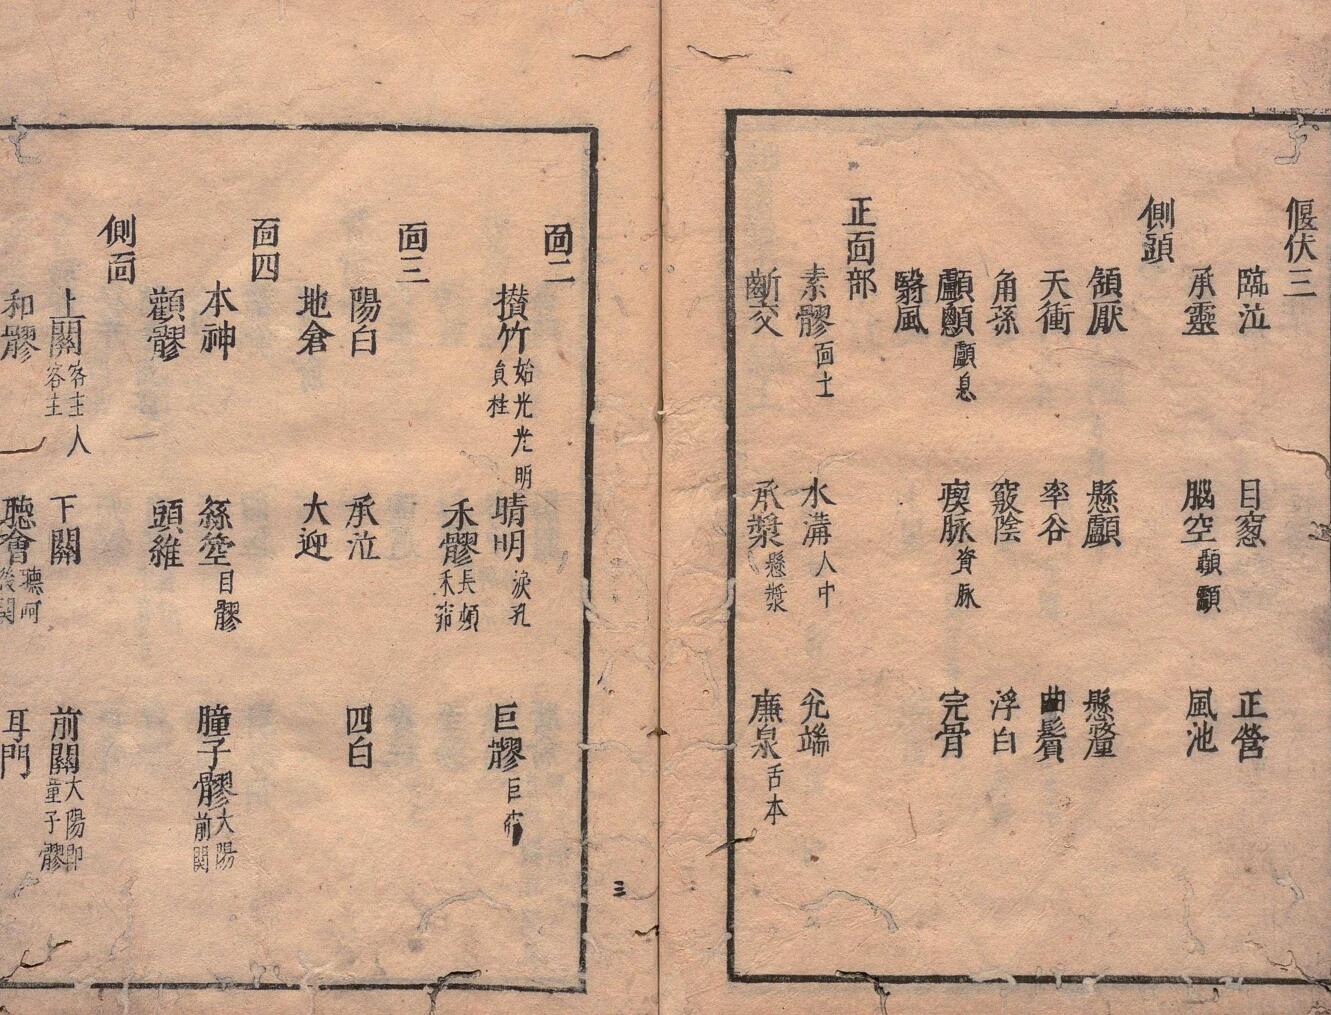 偃伏三
臨泣 目窓 正營
承靈 脳空顳顬 風池
側頭
頷厭 懸顱 懸釐
天衝 率谷 曲鬢
角孫 竅陰 浮白
顱顖顱息 瘈脉資脉 完骨
翳風
正面部
素髎面士 水溝人中 兊端
齗交 承漿懸漿 廉泉舌本
面二
攅竹始光光明員柱 晴明淚孔 巨髎巨
禾髎長頻禾
面三
陽白 承泣 四白
地倉 大迎
面四
本神 絲箜目髎 瞳子髎大陽前関
顴髎 頭維
側面
上關客主人客主 下關 前關大陽即童子髎
和髎 聽會聽呵後関 耳門
三